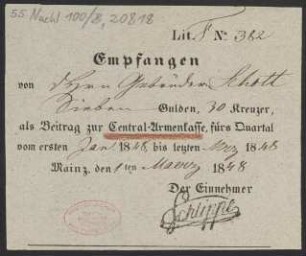 55 Nachl 100/B, 20818
Lit. S No. 382
Empfangen
von d Hrn Gebrüder Schott
Sieben Gulden, 30 Kreuzer,
als Beitrag zur Central-Armenkasse, fürs Quartal
vom ersten Jan 1848 bis letzten Mrz 1848
Mainz, den 1ten Maerz 1848
Der Einnehmer
Schlippe